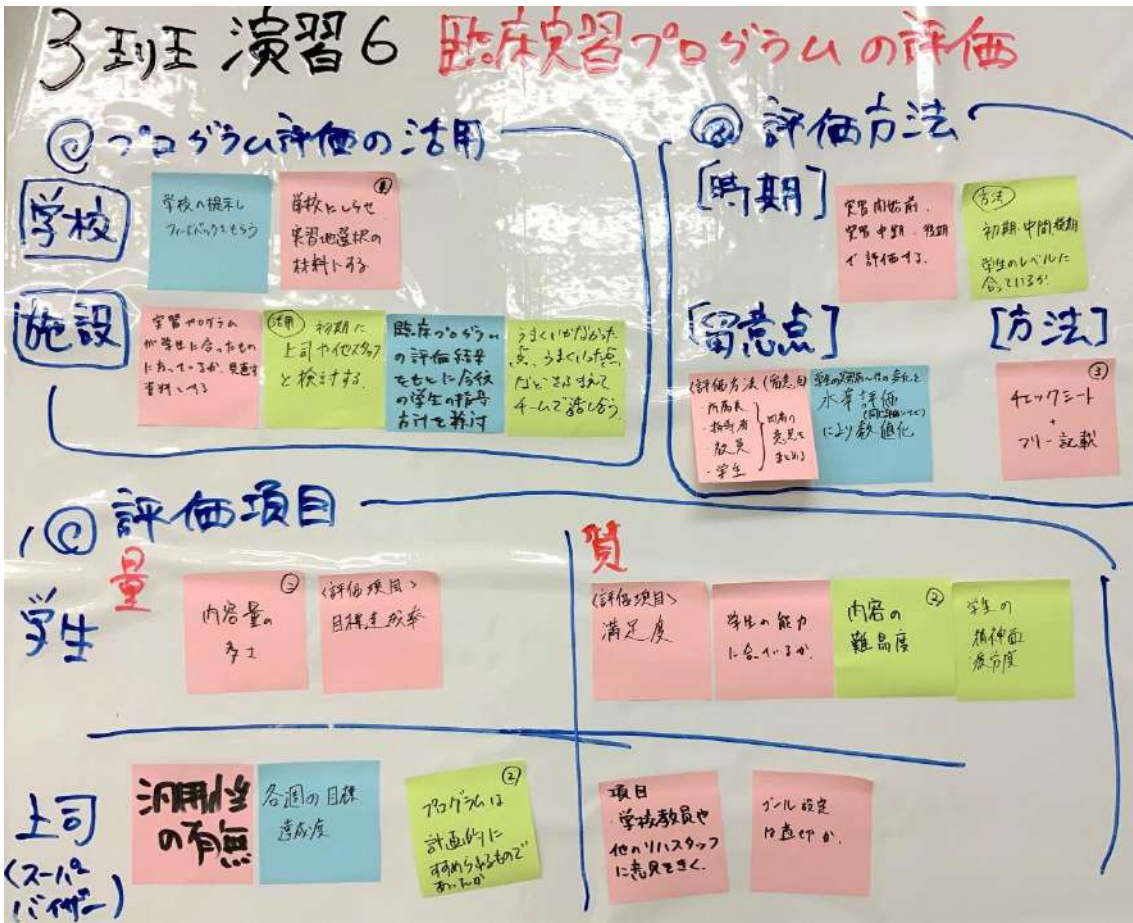 3班 演習6 臨床実習プログラムの評価
@プログラム評価の活用
学校
学校の提示し
フィードバックをもらう
学校にしらせ
実習地選択の
材料にする
施設
実習プログラム
が学生に合ったもの
になっているか、見直す
資料とする
活用 初期に
上司や他スタッフ
と検討する。
臨床プログラム
の評価結果
をもとに今後
の学生の指導
方針を検討
うまくいかなかった
点、うまくいった点
などをふまえて
チームで話し合う。
@評価方法
[時期]
実習開始前、
実習中期・後期
で評価する。
方法
初期・中間・後期
学生のレベルに
合っているか
[留意点]
(評価方法(留意点)
・所属長
・指導者
・教員
・学生
四者の
意見を
まとめる
水準評価
により数値化
[方法]
③
チェックシート
+
フリー記載
©評価項目
量
質
学生
内容量の
多さ
<評価項目>
目標達成率
<評価項目>
満足度
学生の能力
に合っているか。
②
内容の
難易度
学生の
精神面
疲労度
上司
(スーパー
バイザー)
汎用性
の有無
各週の目標
達成度
②
プログラムは
計画的に
すすめられるもので
あったか
項目
・学校教員や
他のリハスタッフ
に意見をきく。
ゴール設定
は適切か。